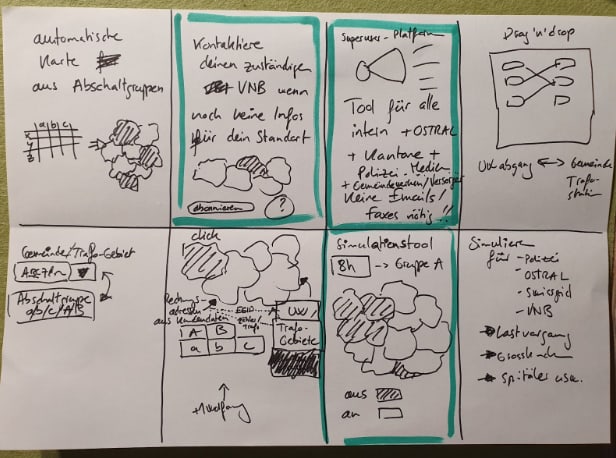 automatische
Karte
aus Abschaltgruppen
a b c
x
y
z
Kontaktiere
deinen zuständigen
VNB wenn
noch keine Infos
für dein Standort
abonnieren
?
Superuser-Plattform
Tool für alle
intern + OSTRAL
+ Kantone +
Polizei. Medien
+ Gemeindewesen/Versorger
Keine Emails/
Faxes nötig!!
Drag'n'drop
UW abgang <-> Gemeinde
Trafo-
station
Gemeinde/Trafo-Gebiet
Abschaltgruppe
a/b/c/A/B
click
Rechnungs-
adressen
aus Kundendaten
EGID
Zähler/
Trafo
UW/
Trafo-
Gebiete
A B
a b c
Simulationstool
8h -> Gruppe A
aus
an
Simuliere
für - Polizei
- OSTRAL
- Swissgrid
- VNB
Lastvorgang
Grosskunden
Spitäler usw.